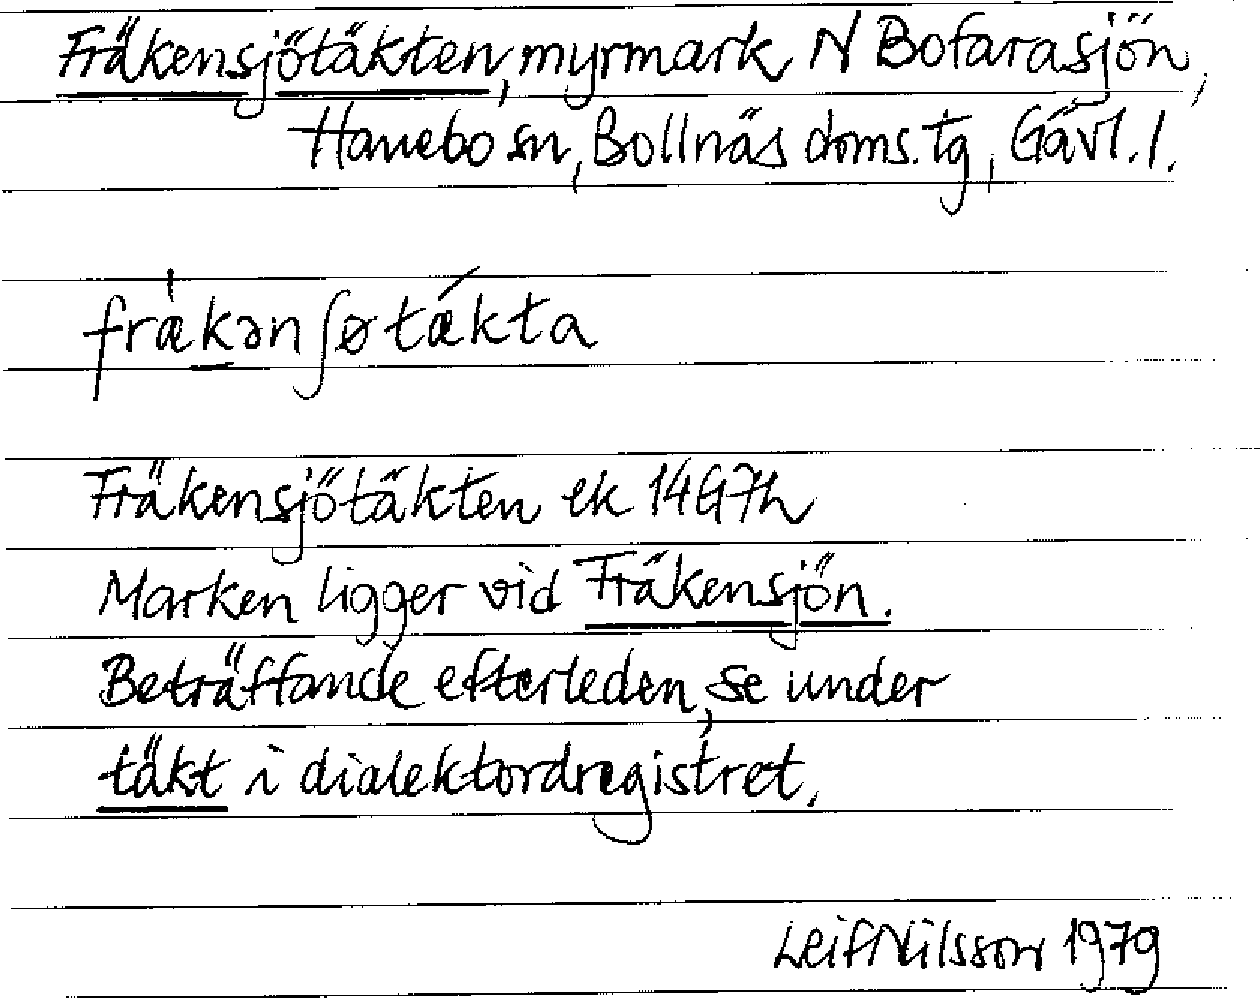 Fräkensjötäkten, myrmark N Bofarasjön,
Hanebo sn, Bollnäs doms.tg, Gävl.l.
fræ̀kən ʃøtǽkta
Fräkensjötäkten ek 14G7h
Marken ligger vid Fräkensjön.
Beträffande efterleden, se under
täkt i dialektordregistret.
Leif Nilsson 1979